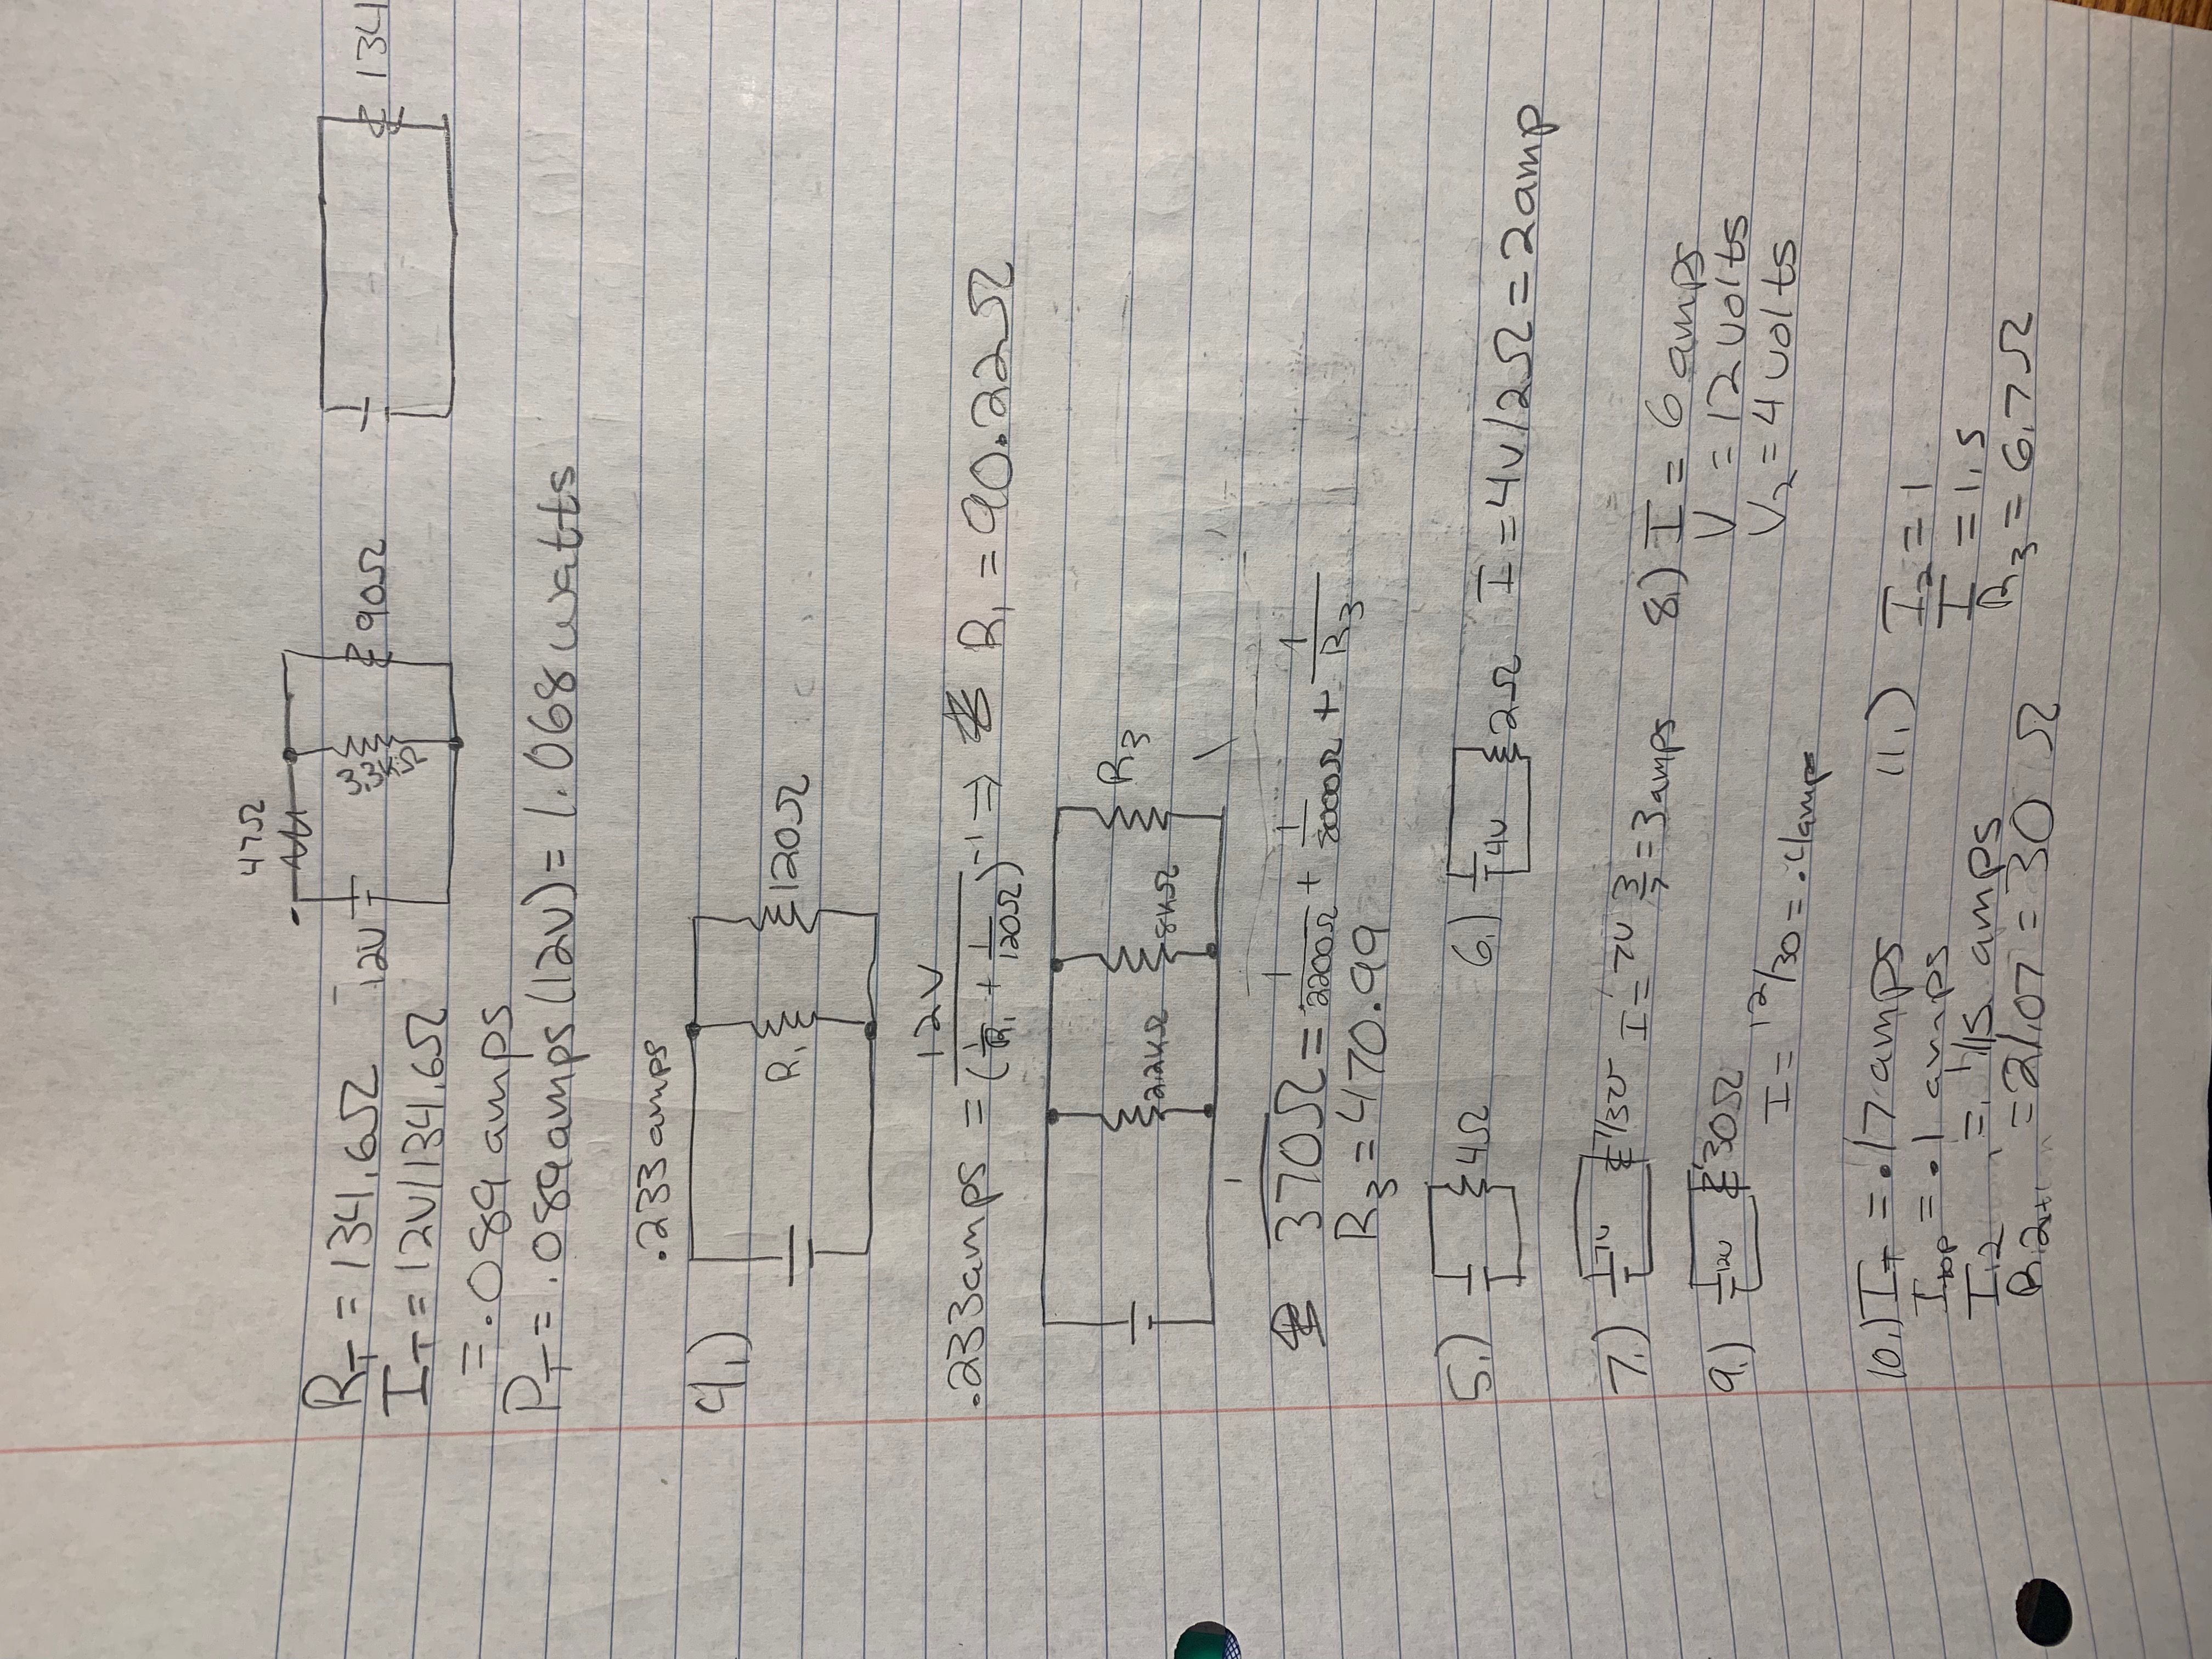 47Ω
R_T = 134.6Ω
12V
3.3kΩ
90Ω
134
I_T = 12V/134.6Ω
= .089 amps
P_T = .089amps(12V) = 1.068 watts
.233 amps
9.)
R₁
120Ω
.233amps = 12V/(1/R₁ + 1/120Ω)⁻¹ ⇒ R₁ = 90.22Ω
2.2kΩ
8kΩ
R₃
1/370Ω = 1/2200Ω + 1/8000Ω + 1/R₃
R₃ = 470.99
5.) 4Ω
6.) 4V 2Ω I = 4V/2Ω = 2amp
7.) 7V 7/3Ω I = 7V 3/7 = 3amps
8.) I = 6 amps
V = 12 volts
V₂ = 4 volts
9.) 12V 30Ω
I = 12/30 = .4amps
10.) I_T = .17 amps
I_top = .1 amps
= 1/15 amps
= 2/.07 = 30 Ω
11.) I₂ = 1
I = 1.5
R₃ = 6.7Ω